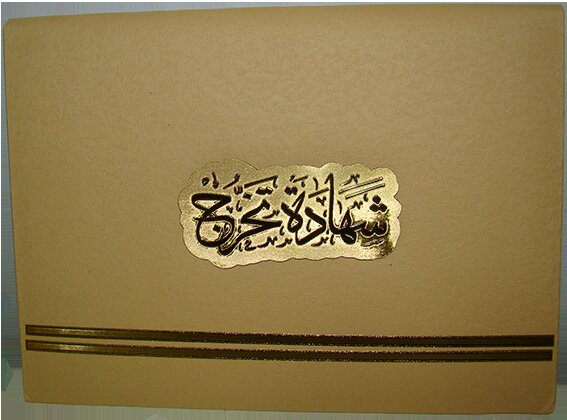 شهادة تخرج